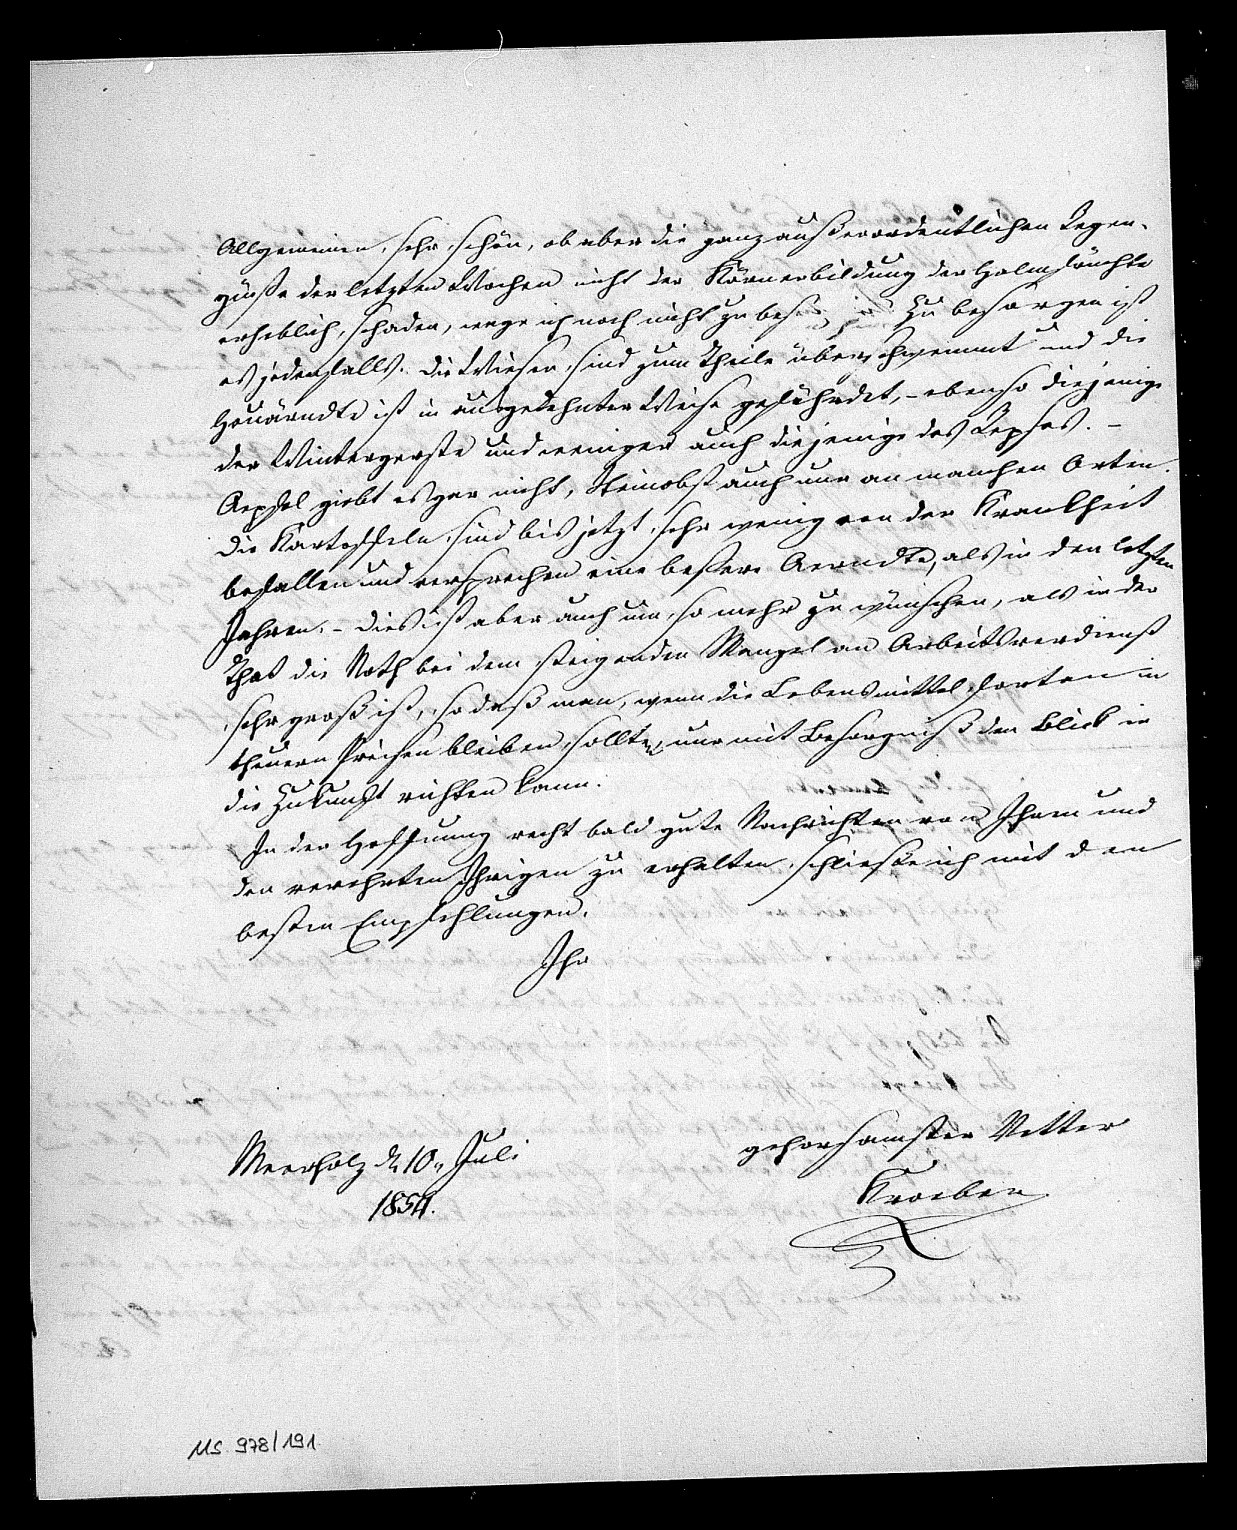 Allgemeinen sehr schön, ob aber die ganz außerordentlichen Regen-
güsse der letzten Wochen nicht der Körnerbildung der Halmfrüchte
erheblich schaden, wage ich noch nicht zu zu besorgen ist
es jedenfalls. Die Wiesen sind zum Theile überschwemmt und die
Heuärndte ist in ausgedehnter Weise gefährdet, – ebenso diejenige
der Wintergerste und weniger auch diejenige des Repses. –
Aepfel giebt es gar nicht, Steinobst auch nur an manchen Orten.
Die Kartoffeln sind bis jetzt sehr wenig von der Krankheit
befallen und versprechen eine bessere Aerndte, als in den letzten
Jahren. – Dies ist aber auch um so mehr zu wünschen, als in der
That die Noth bei dem steigenden Mangel an Arbeitsverdienst
sehr groß ist, so daß man, wenn die Lebensmittel fortan in
theuern Preisen bleiben sollten, nur mit Besorgniß den Blick in
die Zukunft richten kann.
In der Hoffnung recht bald gute Nachrichten von Ihnen und
den verehrten Ihrigen zu erhalten, schließe ich mit den
besten Empfehlungen.
Ihr
gehorsamster Vetter
Kroeber
Meerholz d. 10. Juli
1854.
MS 978/191